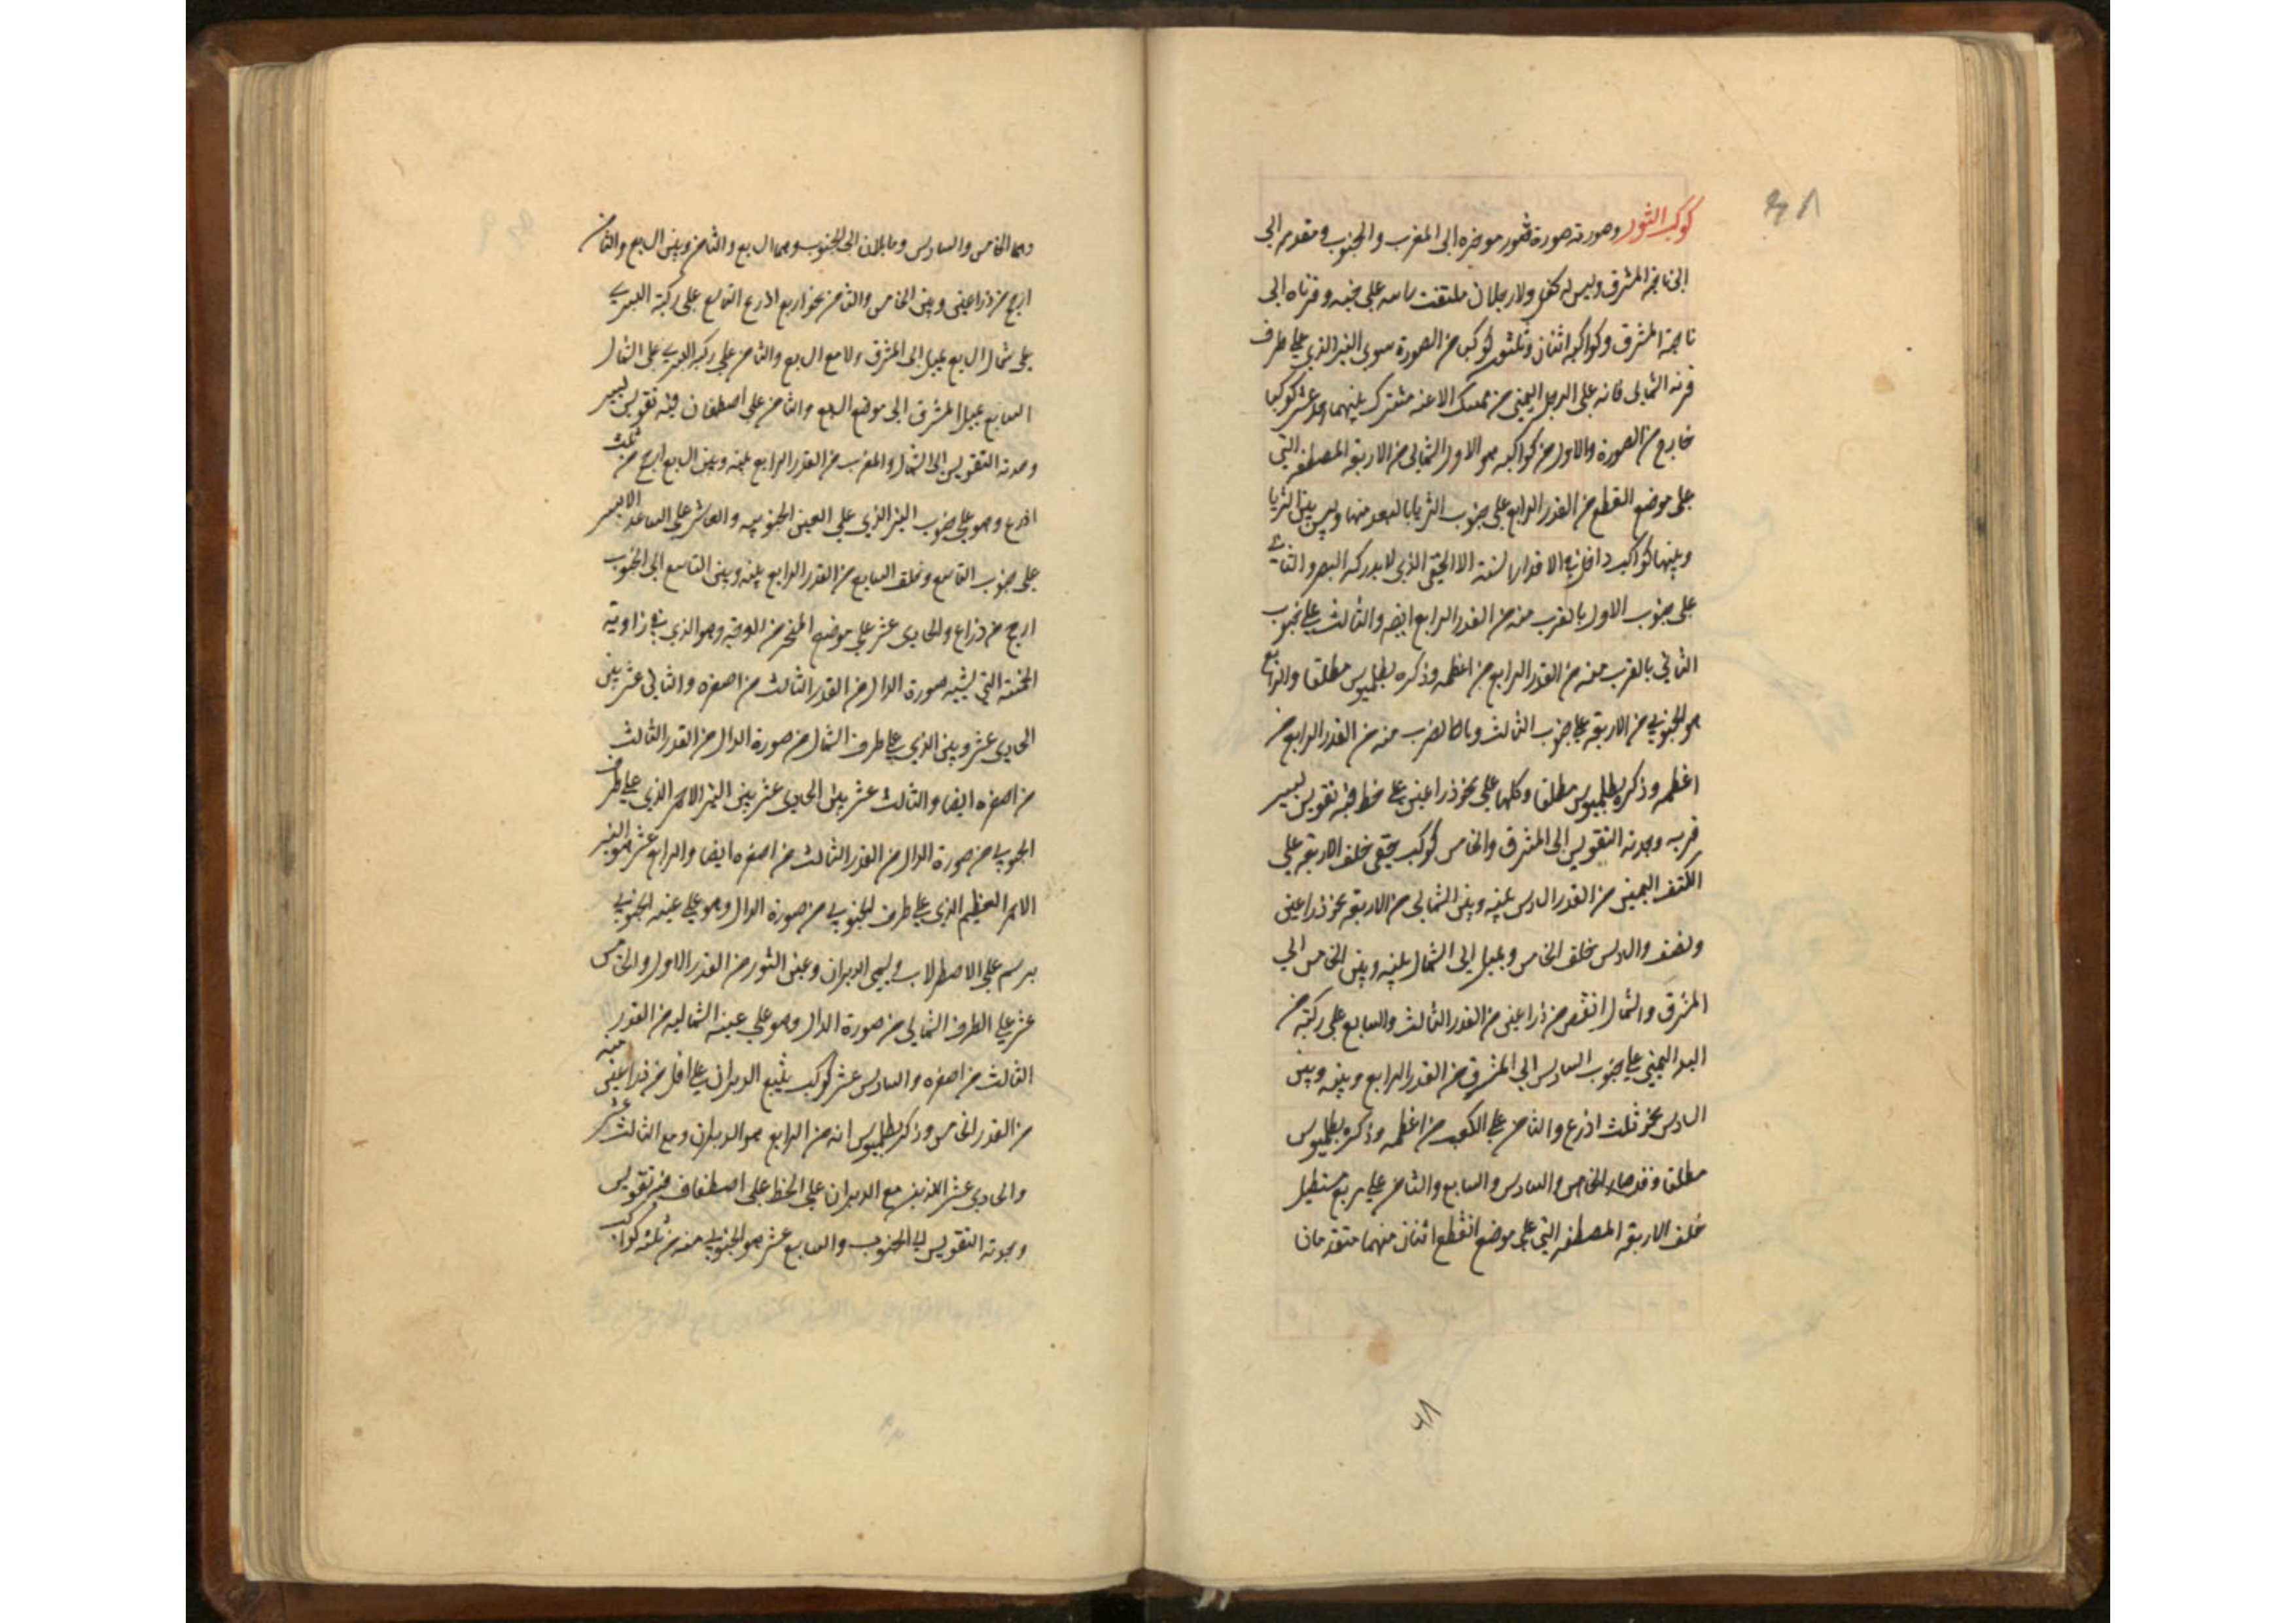 كوكب الثور وصورته صورة ثور موخره الى المغرب والجنوب ومقدمه الى
الى ناحية المشرق وليس له كفل ولا رجلان ملتفت راسه على جنبه وقرناه الى
ناحية المشرق وكواكبه اثنان وثلثون كوكبا من الصورة سوى النير الذي على طرف
قرنه الشمالى فانه على الرجل اليمنى من ممسك الاعنه مشترك بينهما واحد عشر كوكبا
خارج من الصورة والاول من كواكبه هو الاول الشمالى من الاربعه المصطفه التى
على موضع القطع من القدر الرابع على جنوب الثريا بالبعد منها وليس بين الثريا
وبينها كواكب داخلة في الاقدار الستة الا الخفى الذي لا يدركه البصر والثاني
على جنوب الاول بالقرب منه من القدر الرابع ايضه والثالث على جنوب
الثاني بالقرب منه من القدر الرابع من اعظمه وذكره بطلميوس مطلقا والرابع
هو الجنوبي من الاربعه على جنوب الثالث وبالقرب منه من القدر الرابع من
اعظمه وذكره بطلميوس مطلقا وكلها على نحو ذراعين على خط فيه تقويس يسير
قريبه وحدبة التقويس الى المشرق والخامس كوكب خفى خلف الاربعه على
الكتف اليمنى من القدر السادس بينه وبين الشمالى من الاربعه نحو ذراعين
ونصف والسادس خلف الخامس ويميل الى الشمال بينه وبين الخامس الى
المشرق والشمال انقص من ذراعين من القدر الثالث والسابع على ركبته من
اليد اليمنى على جنوب السادس الى المشرق من القدر الرابع وبينه وبين
السادس نحو ثلث اذرع والثامن على الكعب من اعظمه وذكره بطلميوس
مطلقا وقد صار الخامس والسادس والسابع والثامن على مربع مستطيل
خلف الاربعه المصطفه التى على موضع القطع اثنان منهما متقدمان
وهما الخامس والسادس وما يليان الى الجنوب وهما السابع والثامن وبين السابع والثامن
ارجح من ذراعين وبين الخامس والثامن نحو اربع اذرع التاسع على ركبة اليسرى
على شمال السابع يميل الى المشرق ولا مع السابع والثامن على ركبة اليسرى على الشمال
السابع يميل المشرق الى موضع السابع والثامن على اصطفاف فيه تقويس يسير
وحدبة التقويس الى الشمال والمغرب من القدر الرابع بينه وبين السابع ارجح من ثلث
اذرع وهو على جنوب النير الذي على العين الجنوبيه والعاشر على الساعد الايسر
على جنوب التاسع وخلف السابع من القدر الرابع بينه وبين التاسع الى الجنوب
ارجح من ذراع والحادى عشر على موضع المنخر من الوجه وهو الذي في زاوية
الخمسة التى يشبه صورة الدال من القدر الثالث من اصغره والثاني عشر بين
الحادى عشر وبين الذي على طرف الشمال من صورة الدال من القدر الثالث
من اصغره ايضا والثالث عشر بين الحادى عشر بين النير الاحمر الذي على طرف
الجنوبي من صورة الدال من القدر الثالث من اصغره ايضا والرابع عشر هو النير
الاحمر العظيم الذي على طرف الجنوبي من صورة الدال وهو على عينه الجنوبي
يرسم على الاصطرلاب ويسمى الدبران وعين الثور من القدر الاول والخامس
عشر على الطرف الشمالى من صورة الدال وهو على عينه الشماليه من القدر
الثالث من اصغره والسادس عشر كوكب يتبع الدبران على اقل من ذراعين منه
من القدر الخامس وذكر بطلميوس انه من الرابع هو الدبران ومع الثالث عشر
والحادى عشر اللذين مع الدبران على الخط على اصطفاف فيه تقويس
وحدبة التقويس الى الجنوب والسابع عشر هو الجنوبي منه من ثلثة كواكب